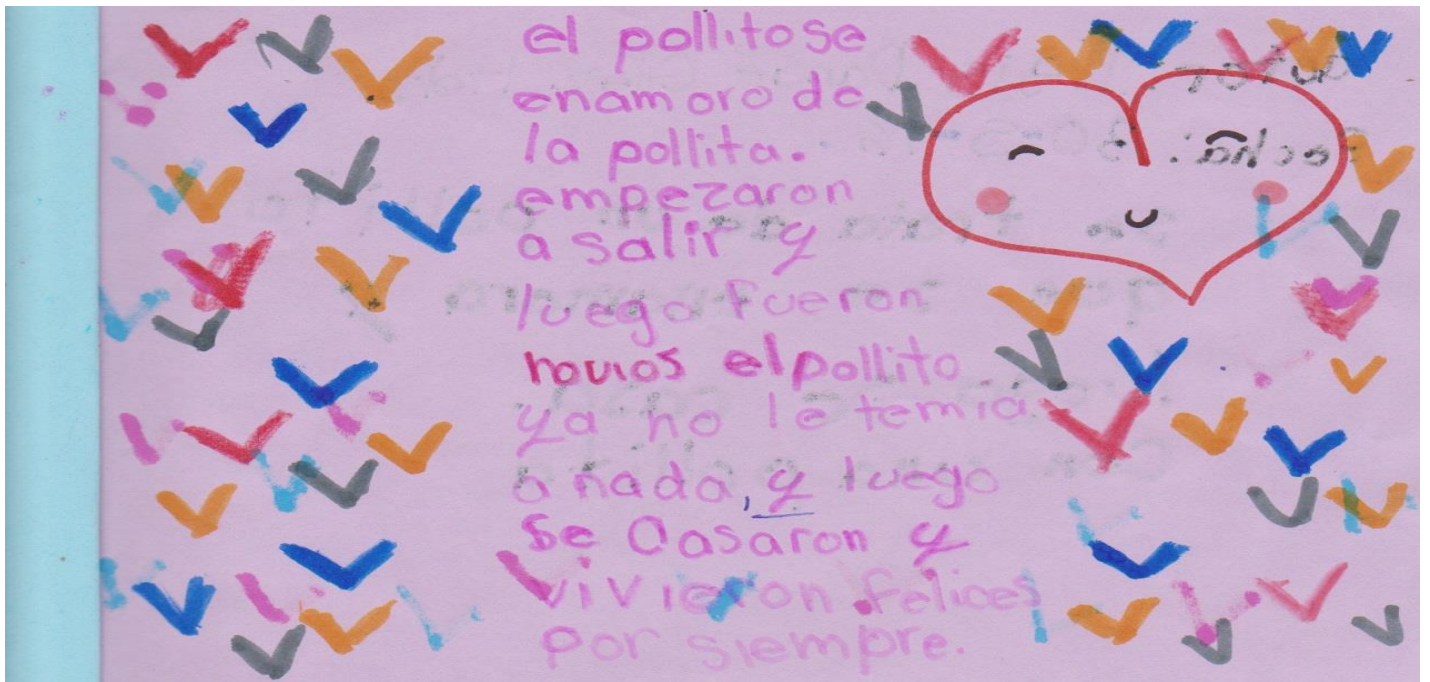 el pollito se
enamoro de
la pollita.
empezaron
a salir y
luego fueron
novios el pollito
ya no le temia
a nada, y luego
se casaron y
vivieron felices
por siempre.